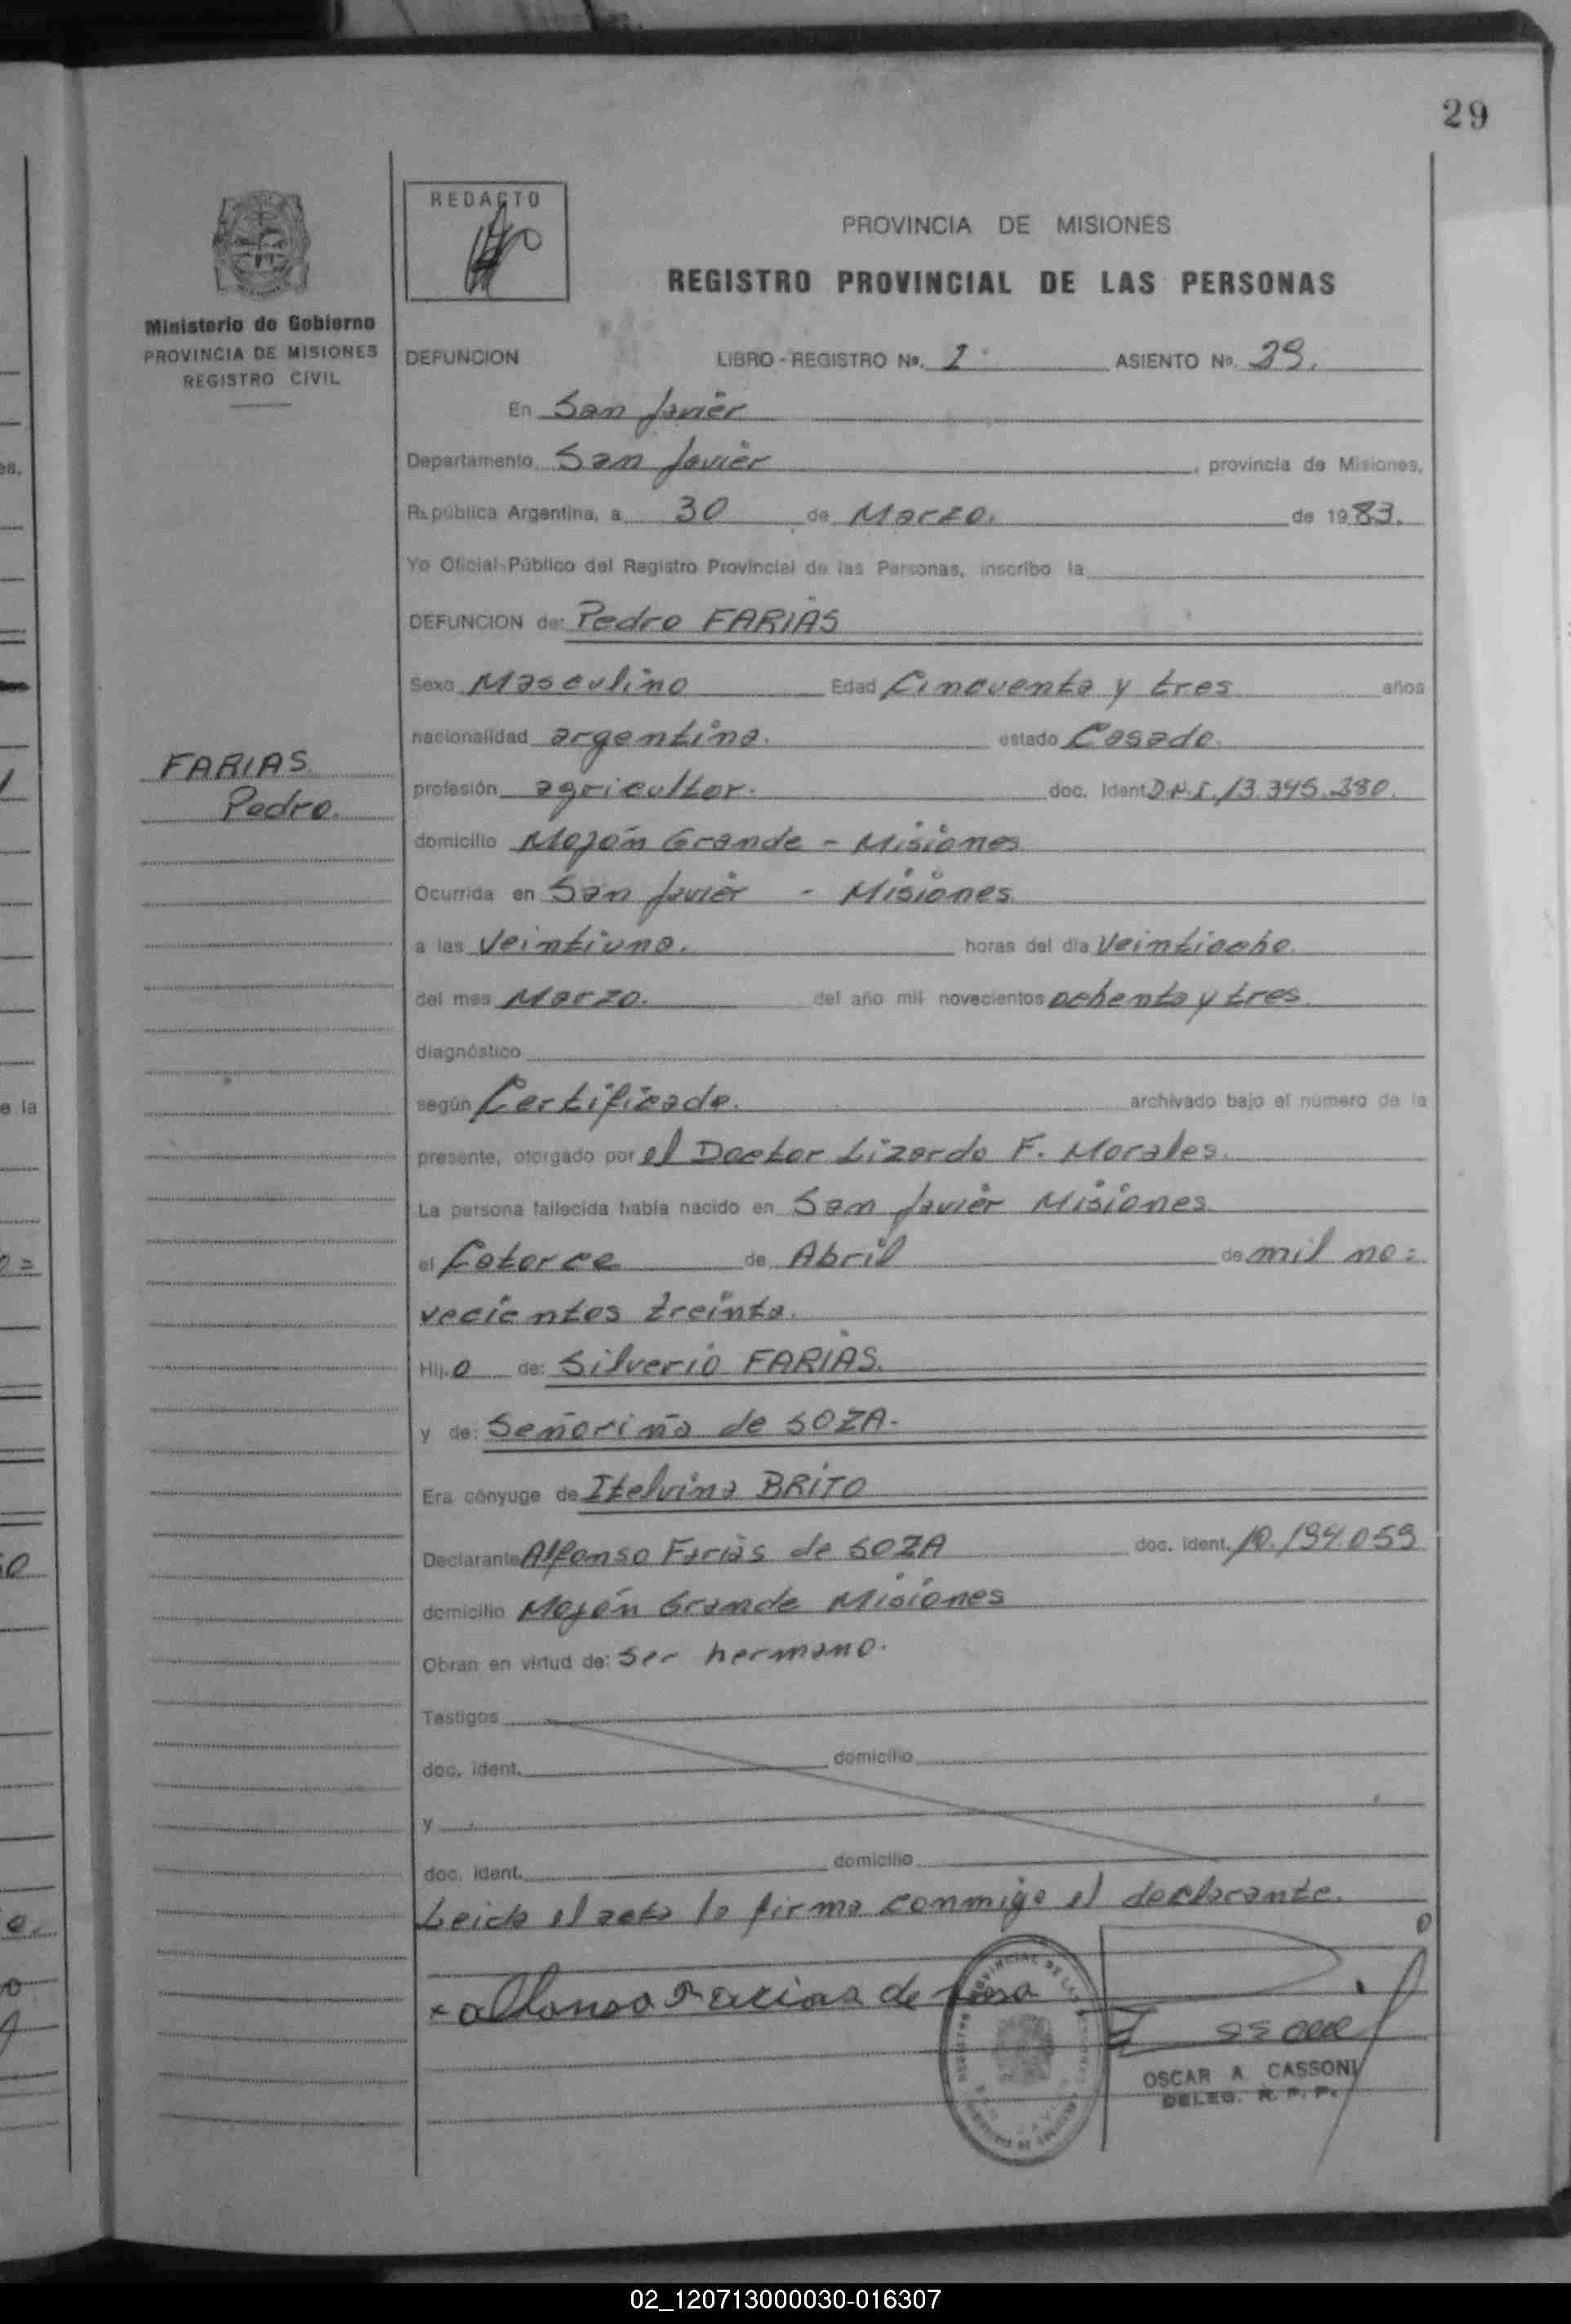 29
REDACTO
PROVINCIA DE MISIONES
REGISTRO PROVINCIAL DE LAS PERSONAS
Ministerio de Gobierno
PROVINCIA DE MISIONES
REGISTRO CIVIL
DEFUNCION LIBRO - REGISTRO No. 1 ASIENTO No. 29.
En San Javier
Departamento San Javier, provincia de Misiones,
República Argentina, a 30 de Marzo. de 1983.
Yo Oficial Público del Registro Provincial de las Personas, inscribo la
DEFUNCION de: Pedro FARIAS
Sexo Masculino Edad Cincuenta y tres años
nacionalidad argentina. estado Casado.
FARIAS
Pedro.
profesión agricultor. doc. Ident D.N.I. 13.345.280.
domicilio Mojón Grande - Misiones
Ocurrida en San Javier - Misiones
a las Veintiuna. horas del día Veintiocho
del mes Marzo. del año mil novecientos ochenta y tres
diagnóstico
según Certificado. archivado bajo el número de la
presente, otorgado por el Doctor Lizardo F. Morales.
La persona fallecida había nacido en San Javier Misiones
el Catorce de Abril de mil no=
vecientos treinta.
Hij.o de: Silverio FARIAS.
y de: Señoriña de SOZA.
Era cónyuge de Itelvina BRITO
Declarante Alfonso Farias de SOZA doc. ident. 10.194.059
domicilio Mojón Grande Misiones
Obran en virtud de: Ser hermano.
Testigos
doc. ident. domicilio
y
doc. ident. domicilio
Leida el acta la firma conmigo el declarante.
x alfonso Farias de sosa
OSCAR A. CASSONI
DELEG. R. P. P.
02_120713000030-016307